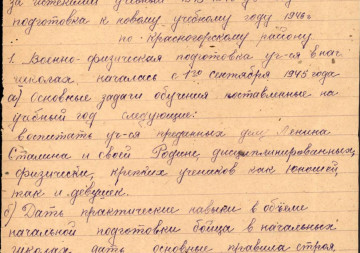 за истекший учебный
подготовка к новому учебному году 1946 г
по Красногорскому району
1. Военно-физическая подготовка уч-ся в нач
школах, началась с 1го сентября 1945 года
а) Основные задачи обучения поставленные на
учебный год следующие:
воспитать уч-ся преданных делу Ленина
Сталина и своей Родине, дисциплинированных,
физически, крепких учеников как юношей,
так и девушек.
б) Дать практические навыки в объёме
начальной подготовки бойца в начальных
школах дать основные правила строя